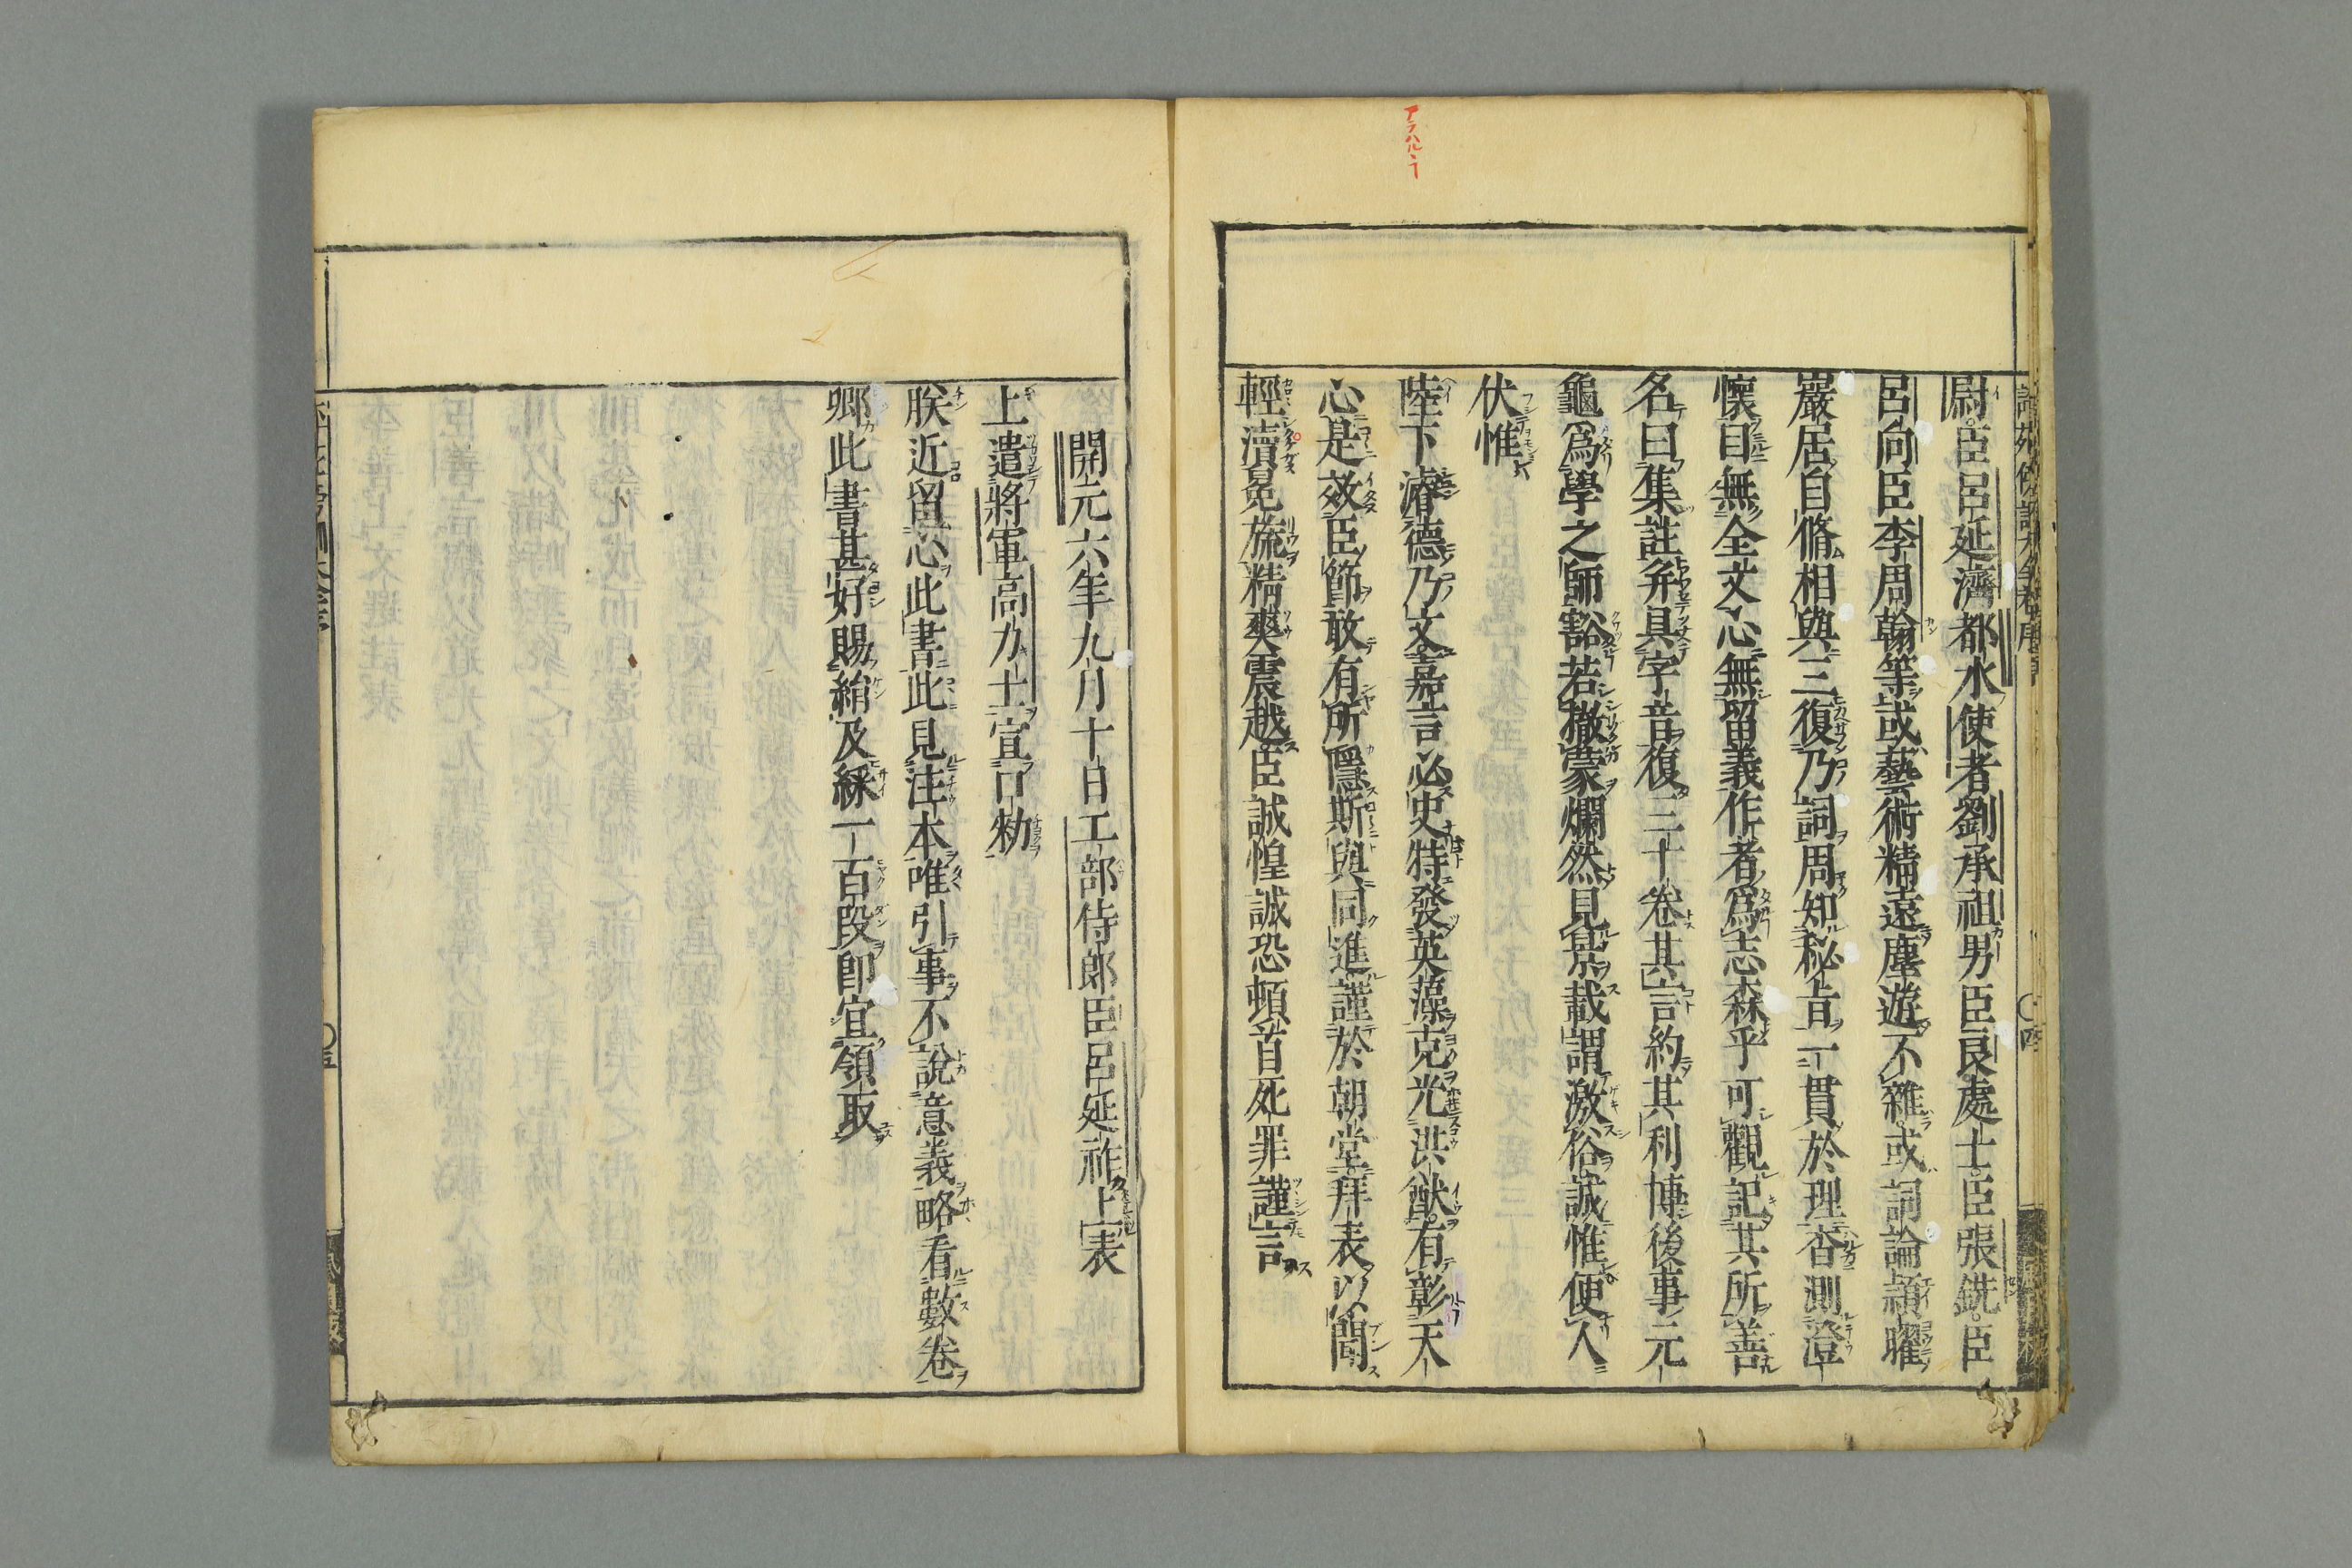 尉臣呂延濟都水使者劉承祖男臣良處士臣張銑臣
呂向臣李周翰等或藝術精遠塵遊不雜或詞論頴曜
巖居自脩相與三復乃詞周知秘旨一貫於理杳測澄
懷目無全文心無留義作者爲志森乎可觀記其所善
名曰集註幷具字音復三十卷其言約其利博後事元
龜爲學之師豁若撤蒙爛然見景載謂激俗誠惟便人
伏惟
陛下濬德乃文嘉言必史特發英藻克光洪猷有彰天
心是效臣節敢有所隱斯與同進謹於朝堂拜表以聞
輕瀆冕旒精爽震越臣誠惶誠恐頓首死罪謹言
アラハル丶ー
開元六年九月十日工部侍郎臣呂延祚上表
上遣將軍高力士宣口勑
朕近留心此書此見注本唯引事不說意義略看數卷
卿此書甚好賜絹及綵一百段卽宜領取